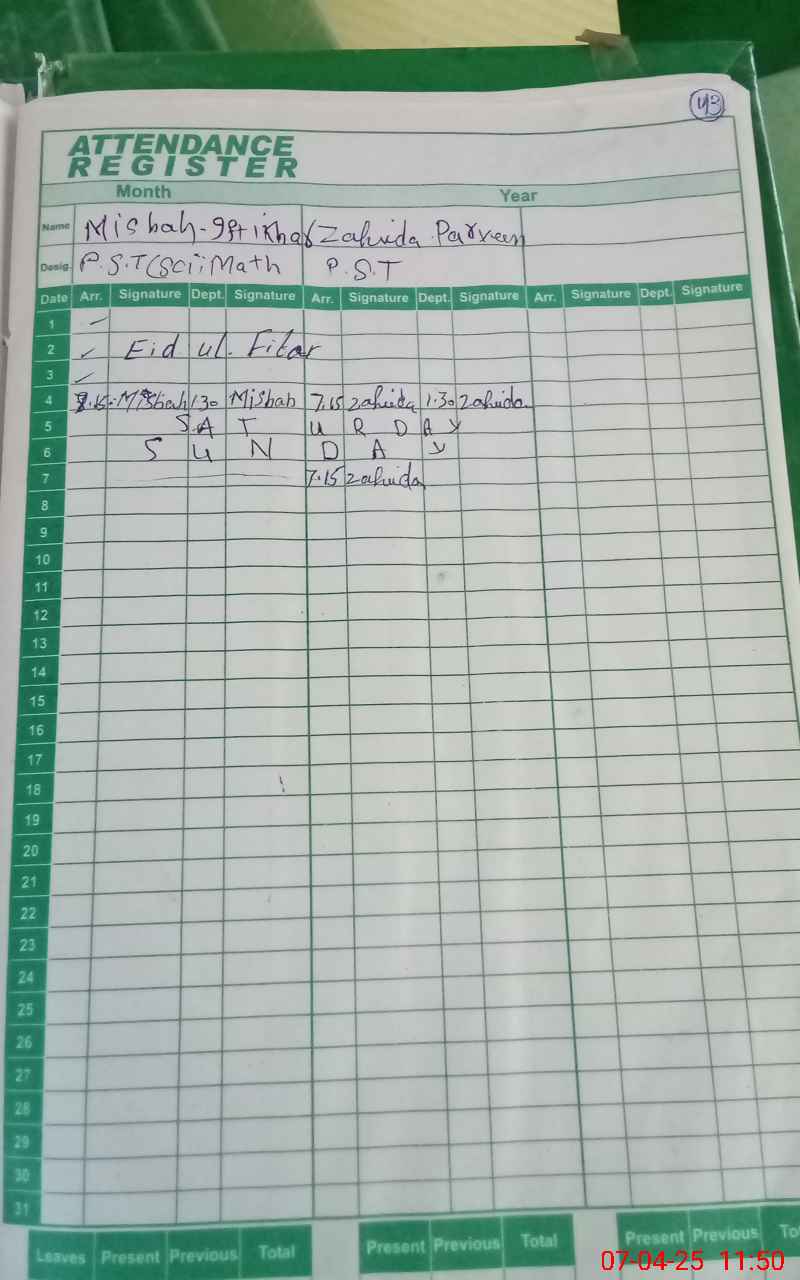 43
ATTENDANCE
REGISTER
Month Year
Name Misbah-Iftikhar Zahida Parveen
Desig. P.S.T(Sci;Math P.S.T
Date Arr. Signature Dept. Signature Arr. Signature Dept. Signature Arr. Signature Dept. Signature
1
2 Eid ul. Fitar
3
4 7.15 Misbah 1:30 Misbah 7.15 Zahida 1.30 Zahida
5 SATURDAY
6 SUNDAY
7 7.15 Zahida
8
9
10
11
12
13
14
15
16
17
18
19
20
21
22
23
24
25
26
27
28
29
30
31
Leaves Present Previous Total Present Previous Total Present Previous To
07-04-25 11:50